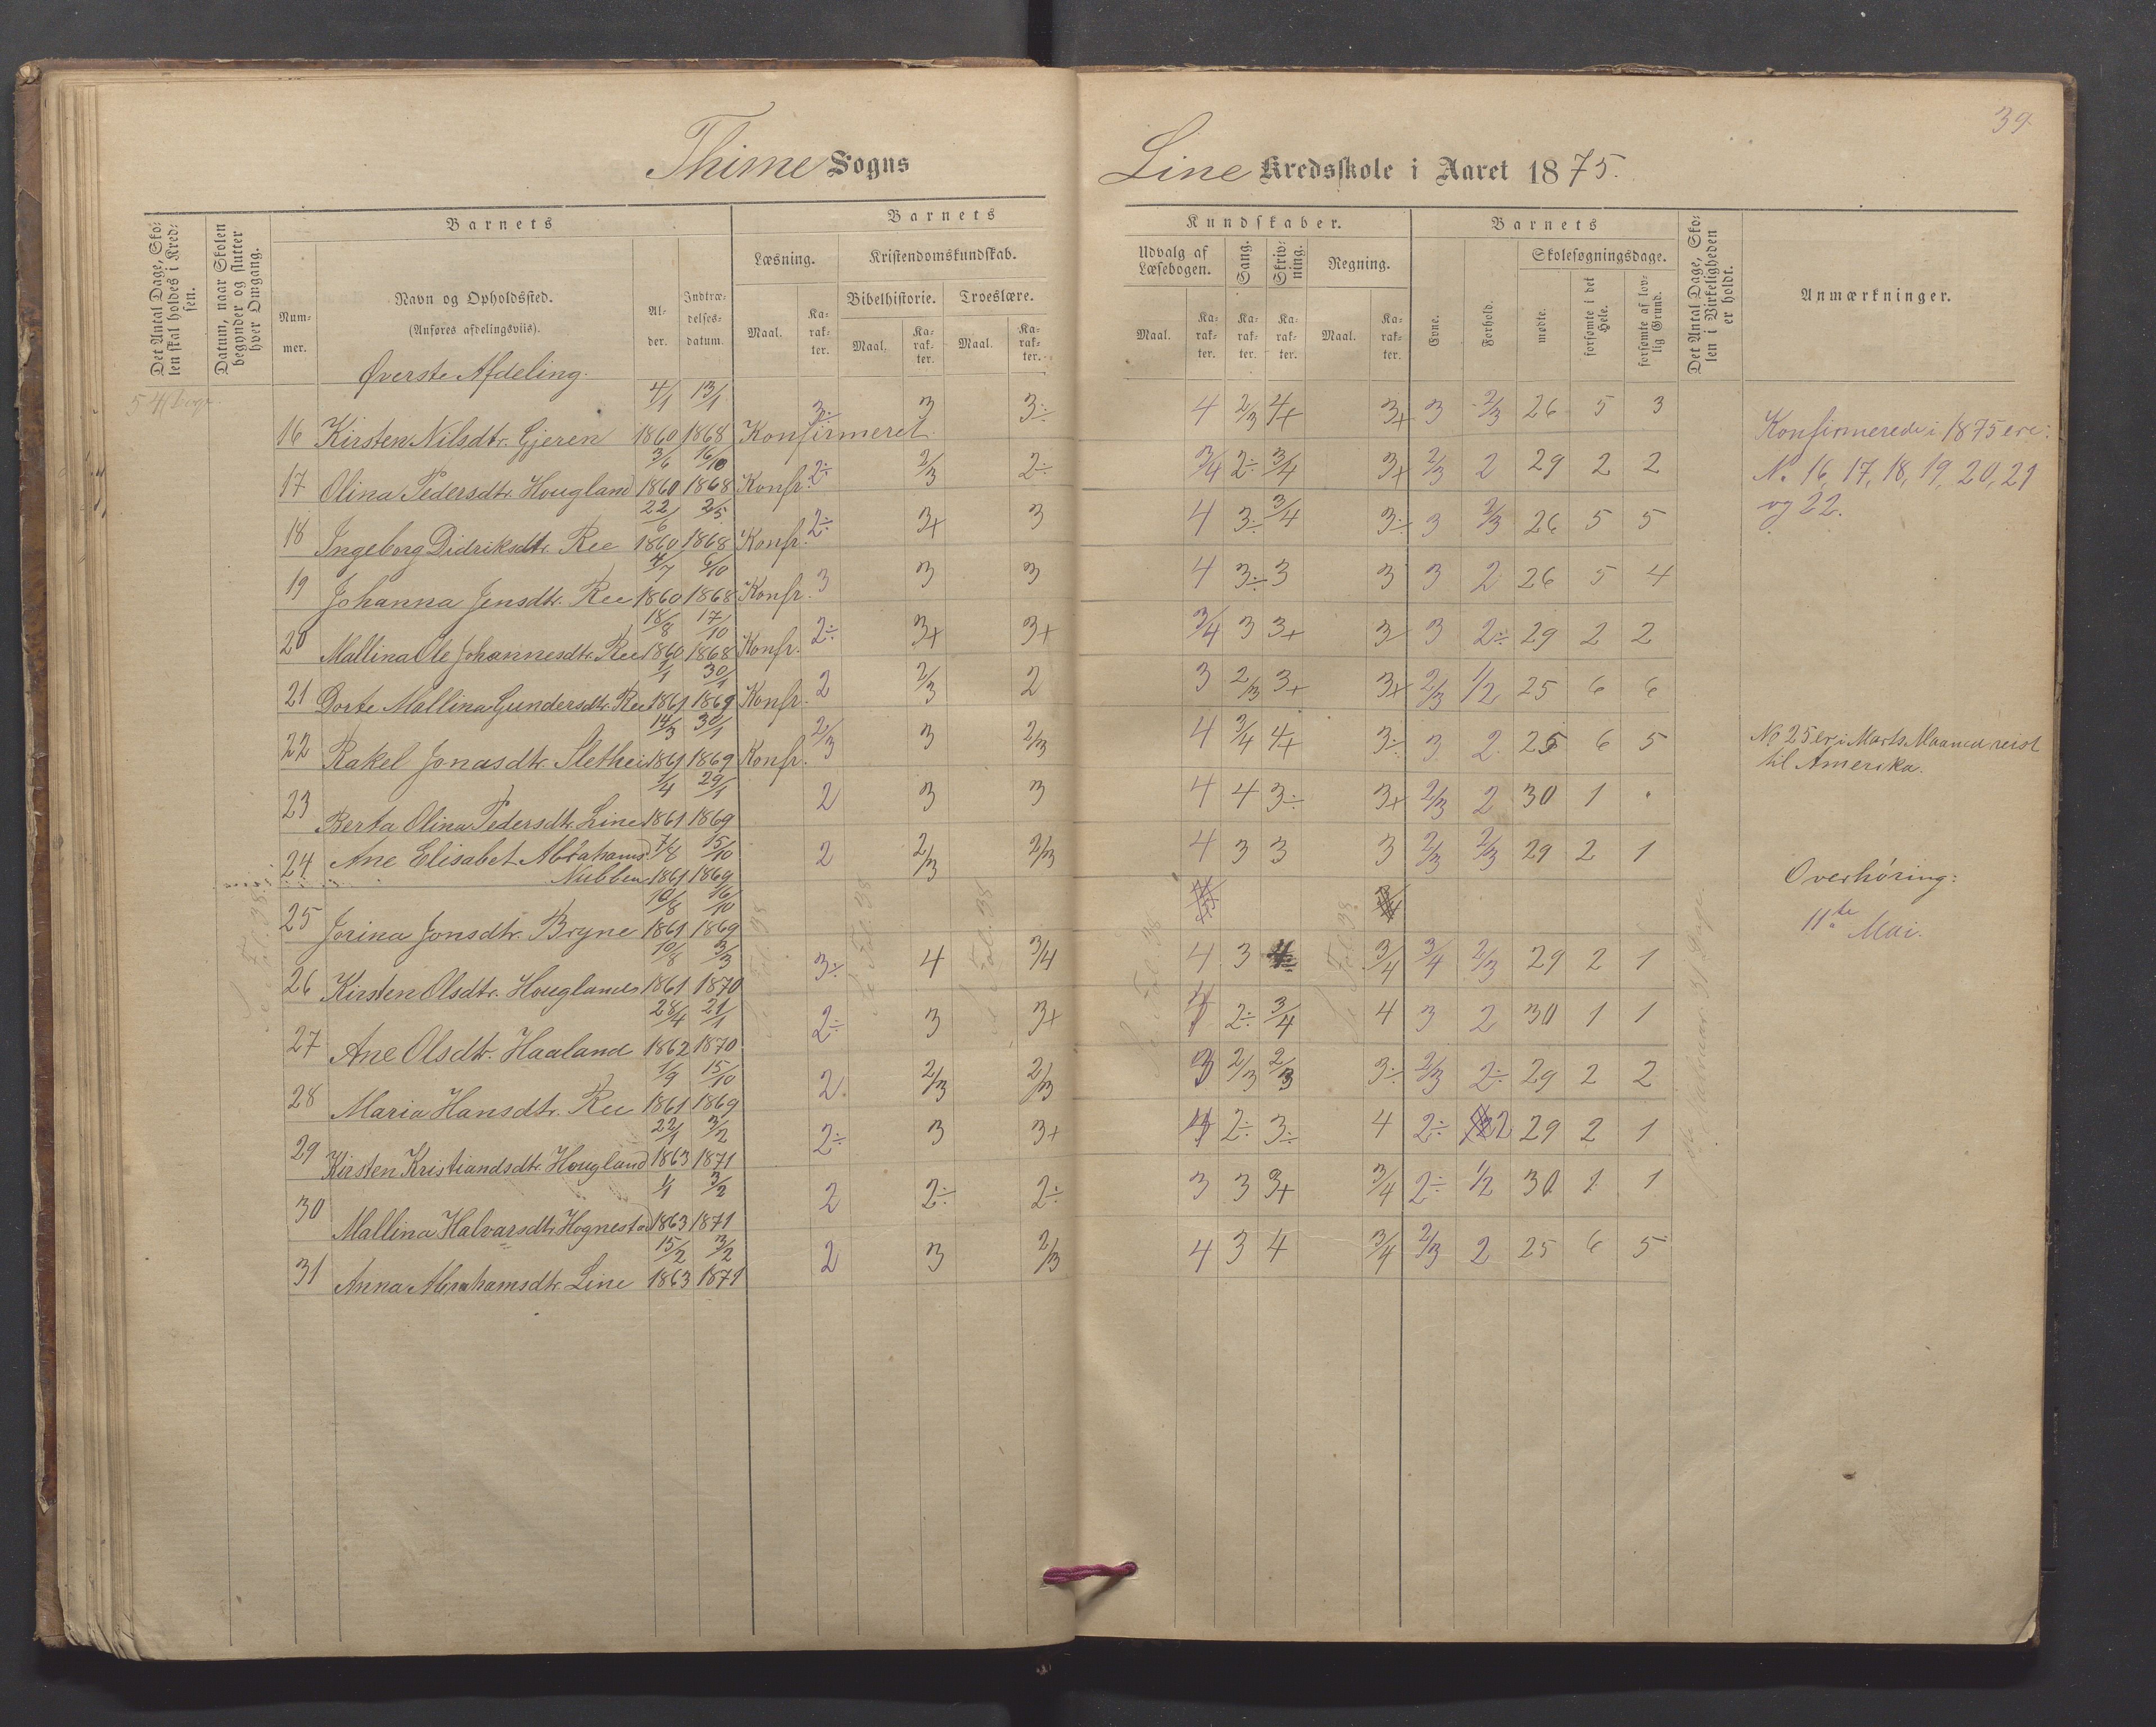 Thime Sogns
Line Kredsskole i Aaret 1875.
39
Det Antal Dage, Skolen skal holdes i Kredsen.
Datum, naar Skolen begynder og slutter hver Omgang.
Barnets
Nummer.
Navn og Opholdssted.
(Anføres afdelingsviis).
Alder.
Indtrædelsesdatum.
Barnets
Læsning.
Kristendomskundskab.
Bibelhistorie.
Troeslære.
Maal. Karakter. Maal. Karakter. Maal. Karakter.
Kundskaber.
Udvalg af Læsebogen.
Sang.
Skrivning.
Regning.
Maal. Karakter. Karakter. Karakter. Maal. Karakter.
Barnets
Evne.
Forhold.
Skolesøgningsdage.
mødte.
forsømte i det Hele.
forsømte af lovlig Grund.
Det Antal Dage, Skolen i Virkeligheden er holdt.
Anmærkninger.
Øverste Afdeling.
54 Dage
16 Kirsten Nilsdtr. Gjeren 4/1 1860 13/1 1868 Konfirmeret 3÷ 3 3÷ 4 2/3 4+ 3+ 3 2/3 26 5 3
17 Olina Pedersdtr. Hougland 3/6 1860 16/10 1868 Konfr. 2÷ 2/3 2÷ 3/4 2÷ 3/4 3+ 2/3 2 29 2 2
18 Ingeborg Didriksdtr. Ree 22/6 1860 2/5 1868 Konfr. 2÷ 3+ 3 4 3÷ 3/4 3÷ 3 2/3 26 5 5
19 Johanna Jensdtr. Ree 4/7 1860 6/10 1868 Konfr. 3 3 3 4 3÷ 3 3 3 2 26 5 4
20 Mallina Ole Johannesdtr. Ree 18/8 1860 17/10 1868 Konfr. 2÷ 3+ 3+ 3/4 3 3+ 3 3 2÷ 29 2 2
21 Dorte Mallina Gundersdtr. Ree 1/1 1861 30/1 1869 Konfr. 2 2/3 2 3 2/3 3+ 3+ 2/3 1/2 25 6 6
22 Rakel Jonasdtr. Slethei 14/3 1861 30/1 1869 Konfr. 2/3 3 2/3 4 3/4 4+ 3÷ 3 2 25 6 5
23 Berta Olina Pedersdtr. Line 1/4 1861 29/1 1869 2 3 3 4 4 3÷ 3+ 2/3 2 30 1 .
24 Ane Elisabet Abrahamsd. 7/8 15/10 2 2/3 2/3 4 3 3 3 2/3 2/3 29 2 1
Nubben 1861 1869
25 Jorina Jonsdtr. Bryne 10/8 1861 16/10 1869
26 Kirsten Olsdtr. Hougland 10/8 1861 3/3 1870 3÷ 4 3/4 4 3 4 3/4 3/4 2/3 29 2 1
27 Ane Olsdtr. Haaland 28/4 1862 21/1 1870 2÷ 3 3+ 2÷ 3/4 4 3 2 30 1 1
28 Maria Hansdtr. Ree 1/9 1861 15/10 1869 2 2/3 2/3 3 2/3 2/3 3÷ 2/3 2÷ 29 2 2
29 Kirsten Kristiandsdtr. Hougland 22/1 1863 3/2 1871 2÷ 3 3+ 4 2÷ 3÷ 4 2÷ 2 29 2 1
30 Mallina Halvarsdtr. Hognestad 1/1 1863 3/2 1871 2 2÷ 2÷ 3 3 3+ 3/4 2÷ 1/2 30 1 1
31 Anna Abrahamsdtr. Line 15/2 1863 3/2 1871 2 3 2/3 4 3 4 3/4 2/3 2 25 6 5
Se Fol. 38
Se Fol. 38
Se Fol. 38
Se Fol. 38
Se Fol. 38
Se Fol. 38
31 Dage
Konfirmerede i 1875 ere:
No 16, 17, 18, 19, 20, 21
og 22.
No 25 er i Marts Maaned reist
til Amerika.
Overhøring:
11te Mai.